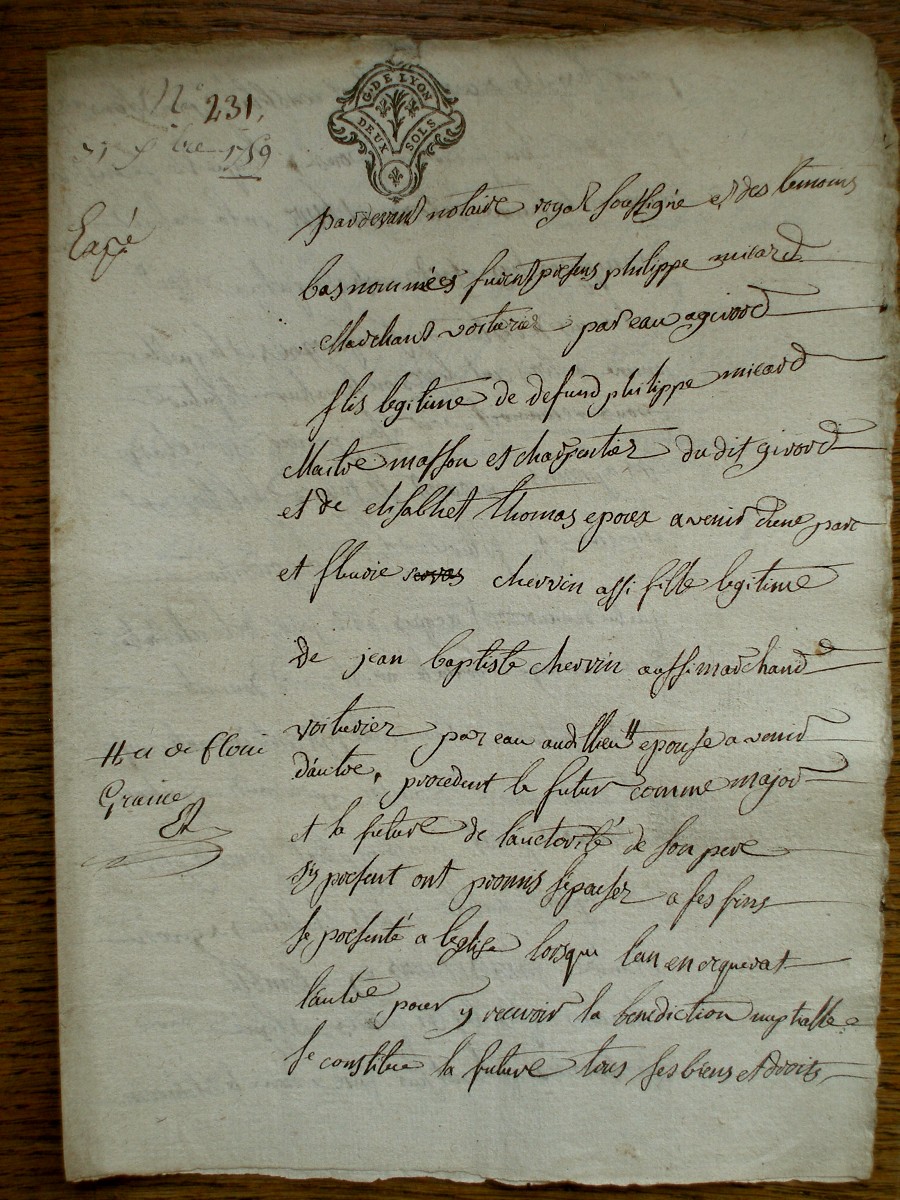 N° 231,
G. DE LYON
DEUX SOLS
31 bre 1759
pardevant notaire royal soussigné et des temoins
bas nommées furent présens philippe micard
Marchand voiturier par eau a givord
fils legitime de defund philippe micard
Maitre masson et charpentier dudit givord
et de elisabhet thomas epoux avenir d'une part
et fleurie chervin assi fille legitime
de jean baptiste chervin aussi marchand
voiturier par eau audit lieu # epouse avenir
# et de fleurie
Graine
d'autre, procedent le futur comme major
et la future de l'auctorité de son pere
ysy present ont promis s'epouser a ses fins
se presenté a leglise lorsque l'un en requerat
l'autre pour y recevoir la benediction nuptialle
se constitue la future tous ses biens et droits